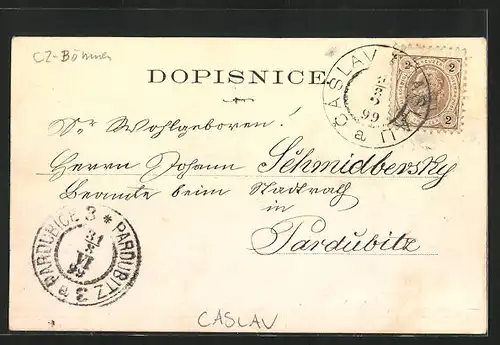 CZ-Böhmen
DOPISNICE
2 2
ČASLAV
99
a
Sr Wohlgeboren!
Herrn Johann Schmidbersky
Beamte beim Stadtrath
in
Pardubitz
PARDUBICE 3 * PARDUBITZ 3 a
31
VI
99
CASLAV